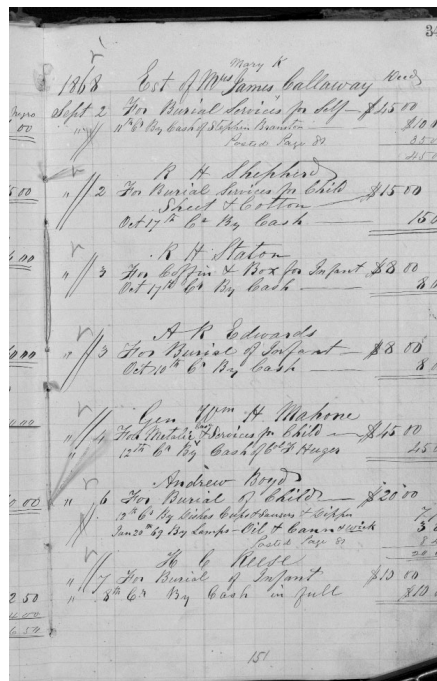 34
Mary K
1868 Est of Mrs James Callaway
Sept 2 For Burial Services for Self - $45.00
" 11th Cr By Cash of Stephen $10 0
Posted Page 81 35 0
45 0
R H Shepherd
" 2 For Burial Services for Child $15 00
Sheet & Cotton
Oct 17th Cr By Cash 15 0
R H Staton
" 3 For Coffin & Box for Infant $8 00
Oct 17th Cr By Cash 8 0
A R Edwards
" 3 For Burial of Infant - $8 00
Oct 10th Cr By Cash 8 0
Gen Wm H Mahone
" 4 For Metalic Case & Services for Child - $45 00
" 12th Cr By Cash of Col F Huger 45 0
Andrew Boyd
" 6 For Burial of Child - $20 00
12th Cr By Dishes Cups & Saucers & 7
Jan 20th 69 By Lamps - Oil & Cann & Wick 3
Posted Page 81 8
20 0
H C Reese
" 7 For Burial of Infant $10 00
" 8th Cr By Cash in full $10
151